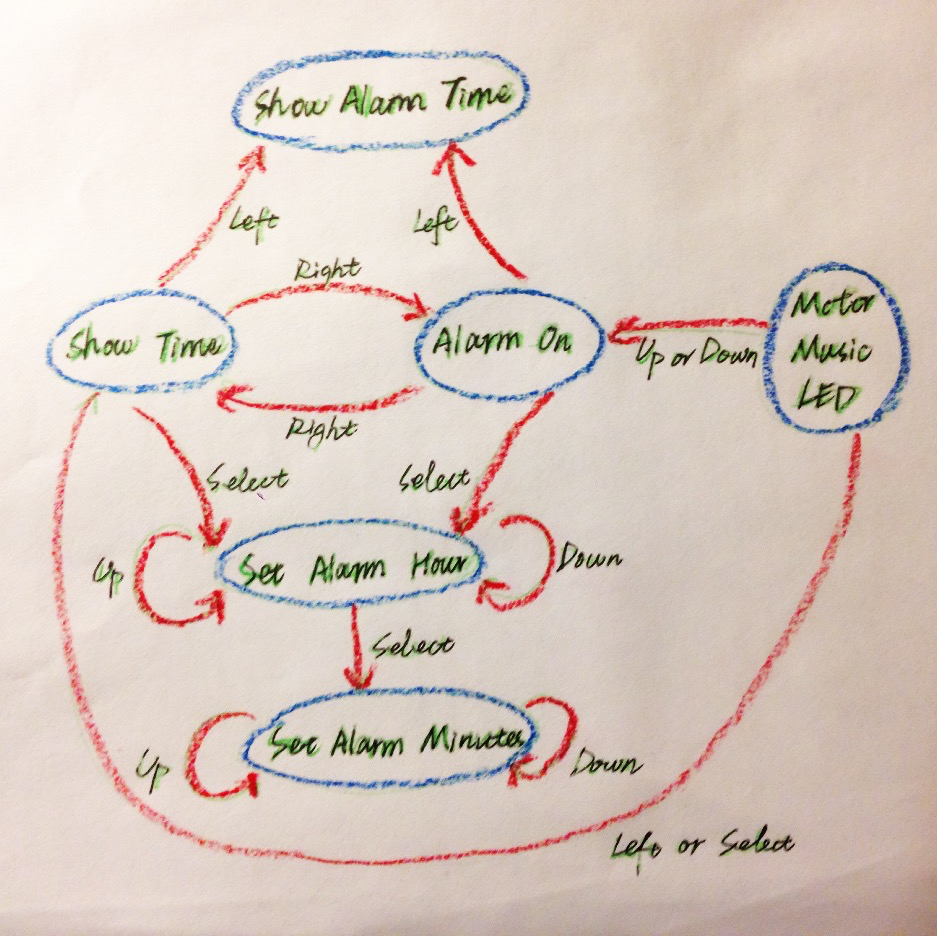 Show Alarm Time
Left
Left
Right
Show Time
Alarm On
Motor
Music
LED
Up or Down
Right
Select
Select
Up
Set Alarm Hour
Down
Select
Up
Set Alarm Minutes
Down
Left or Select